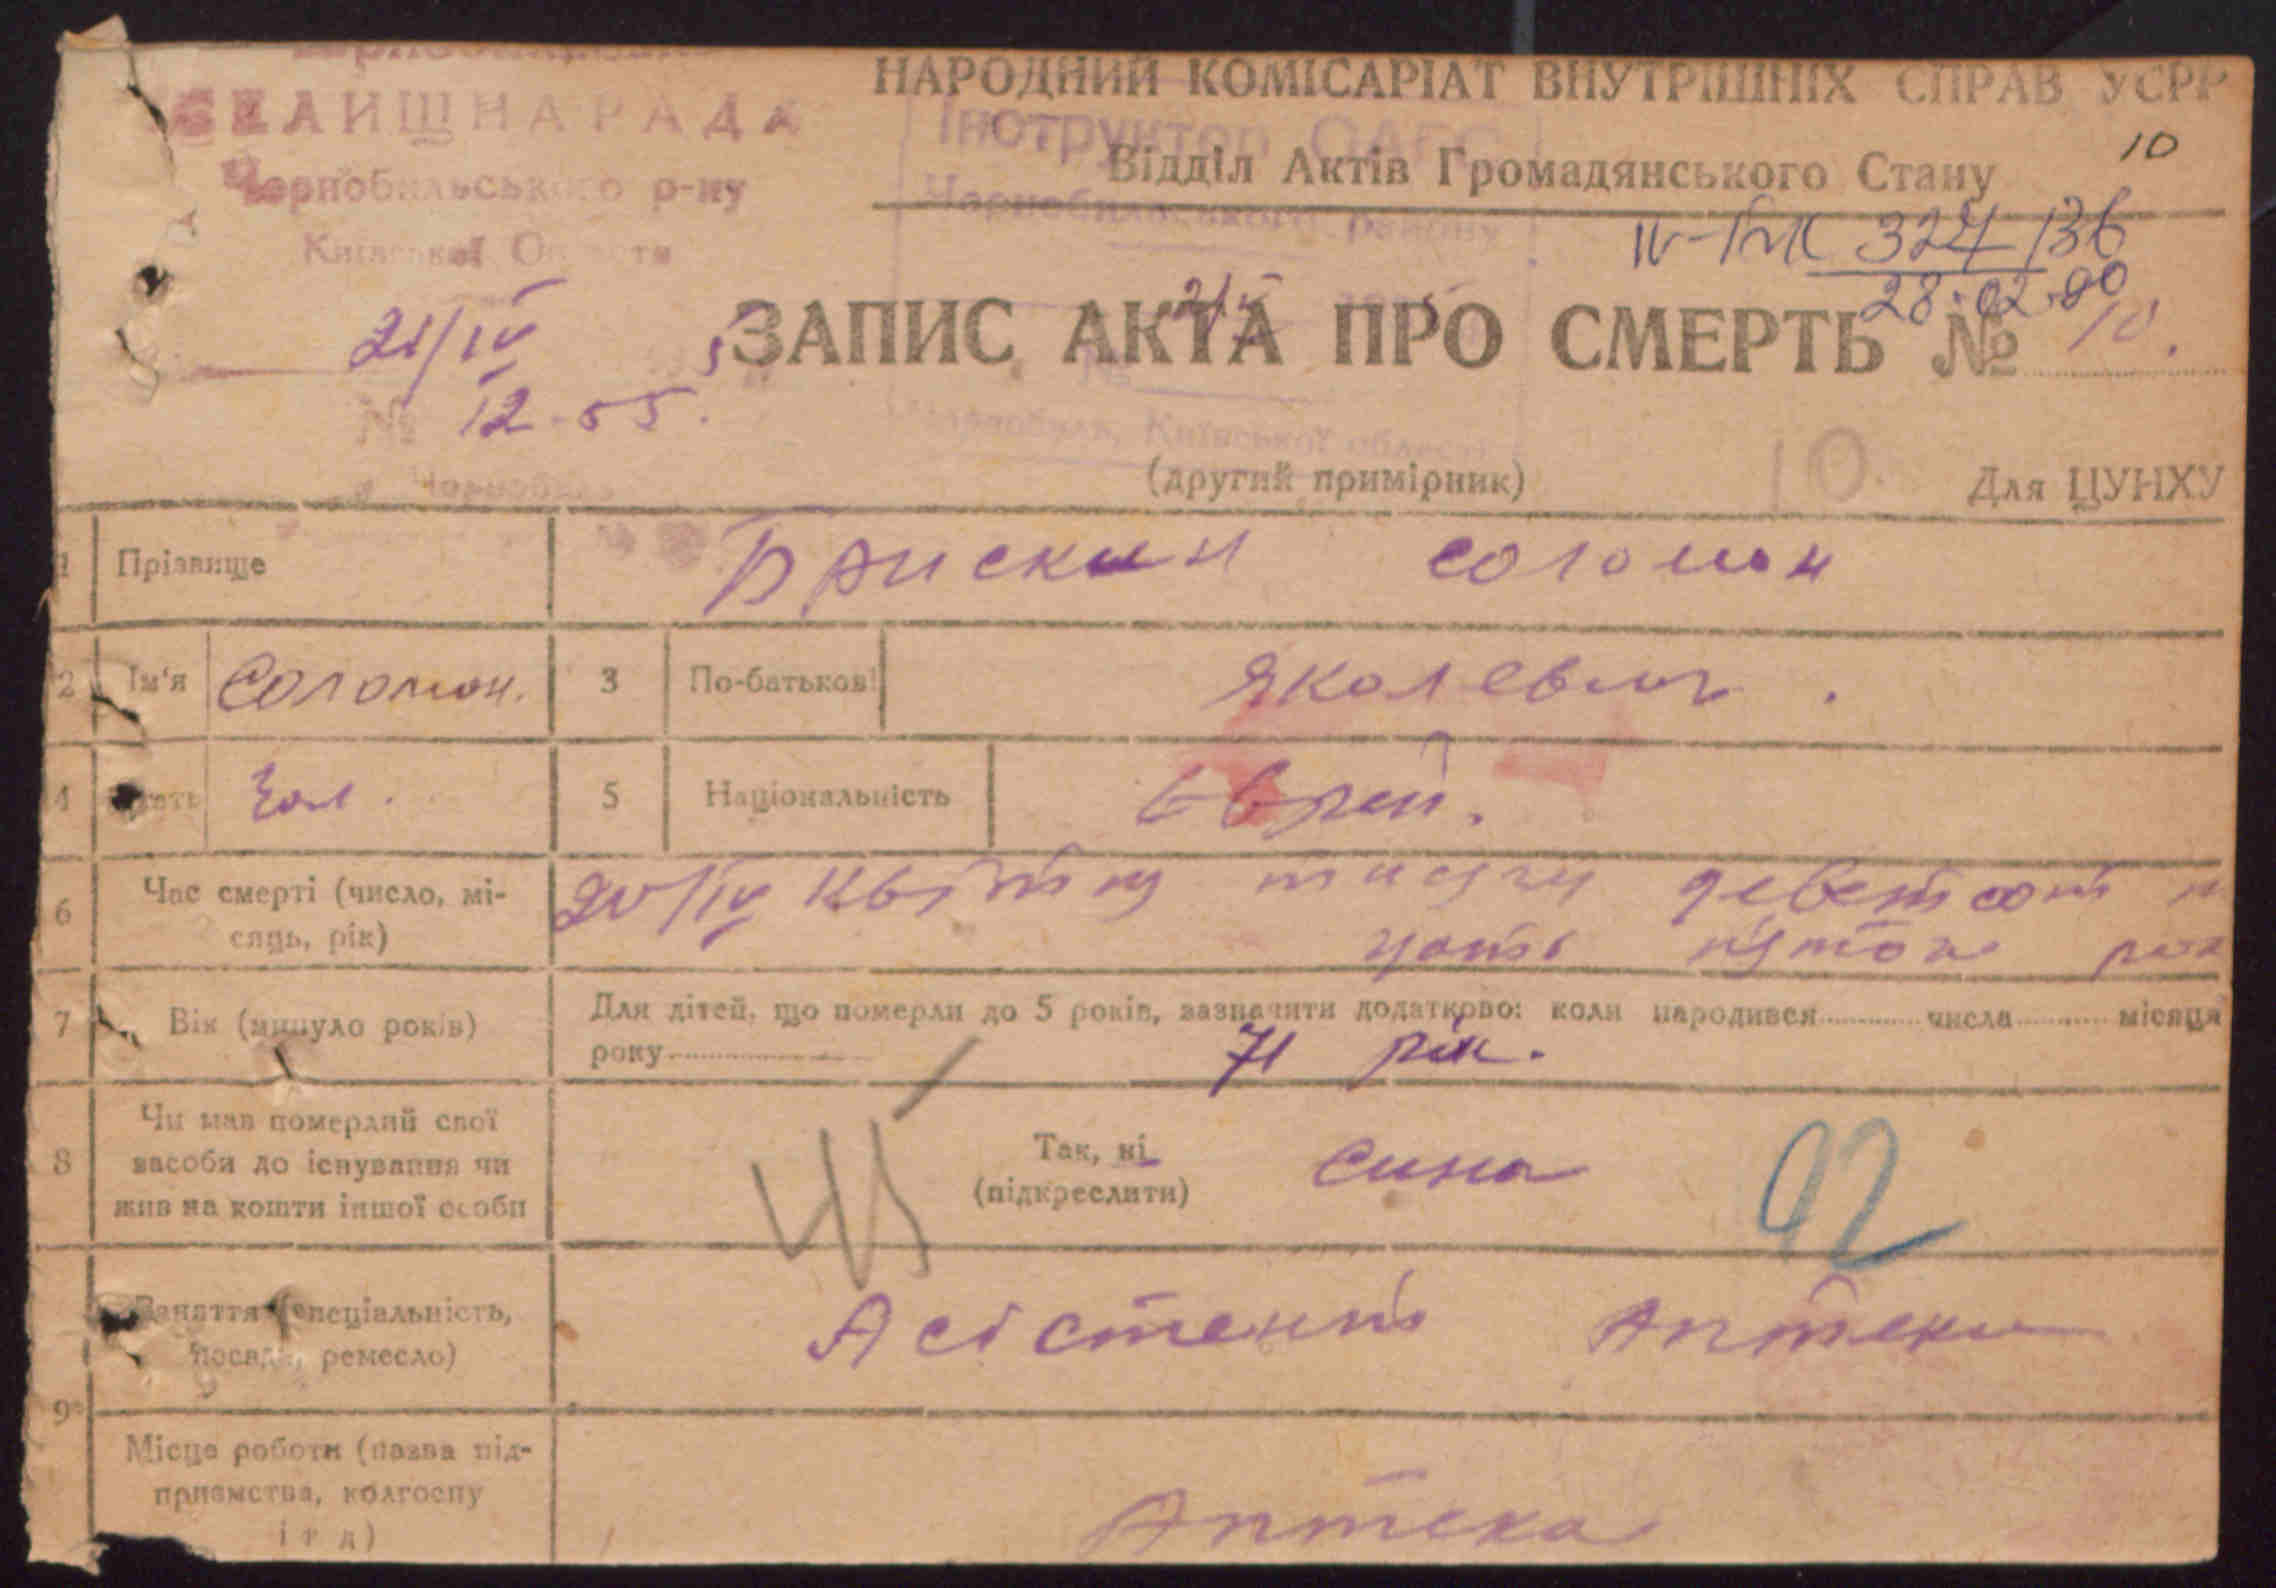 СЕЛИЩНА РАДА
Чорнобильського р-ну
Київської Області
21/IV
№ 12-55.
Чорнобиль
Інструктор ОАГС
Чорнобильського району
№
Чорнобиль, Київської області
НАРОДНИЙ КОМІСАРІАТ ВНУТРІШНІХ СПРАВ УСРР
10
Відділ Актів Громадянського Стану
324 136
28.02.90
ЗАПИС АКТА ПРО СМЕРТЬ № 10.
10
(другий примірник)
Для ЦУНХУ
1 Прізвище Брискин Соломон
2 Ім'я Соломон. 3 По-батькові Яколевич.
4 Стать Чол. 5 Національність Єврей.
6 Час смерті (число, мі-
сяць, рік)
20/IV Квітня тисяч деветсот
цать пятого рок
7 Вік (минуло років) Для дітей, що померли до 5 років, зазначити додатково: коли народився числа місяця
року 71 рік.
8 Чи мав померлий свої
засоби до існування чи
жив на кошти іншої особи
Так, ні
(підкреслити)
Сина
92
9 Заняття (спеціальність,
посада, ремесло)
Асістент Аптеки
Місце роботи (назва під-
приємства, колгоспу
і т д)
Аптека